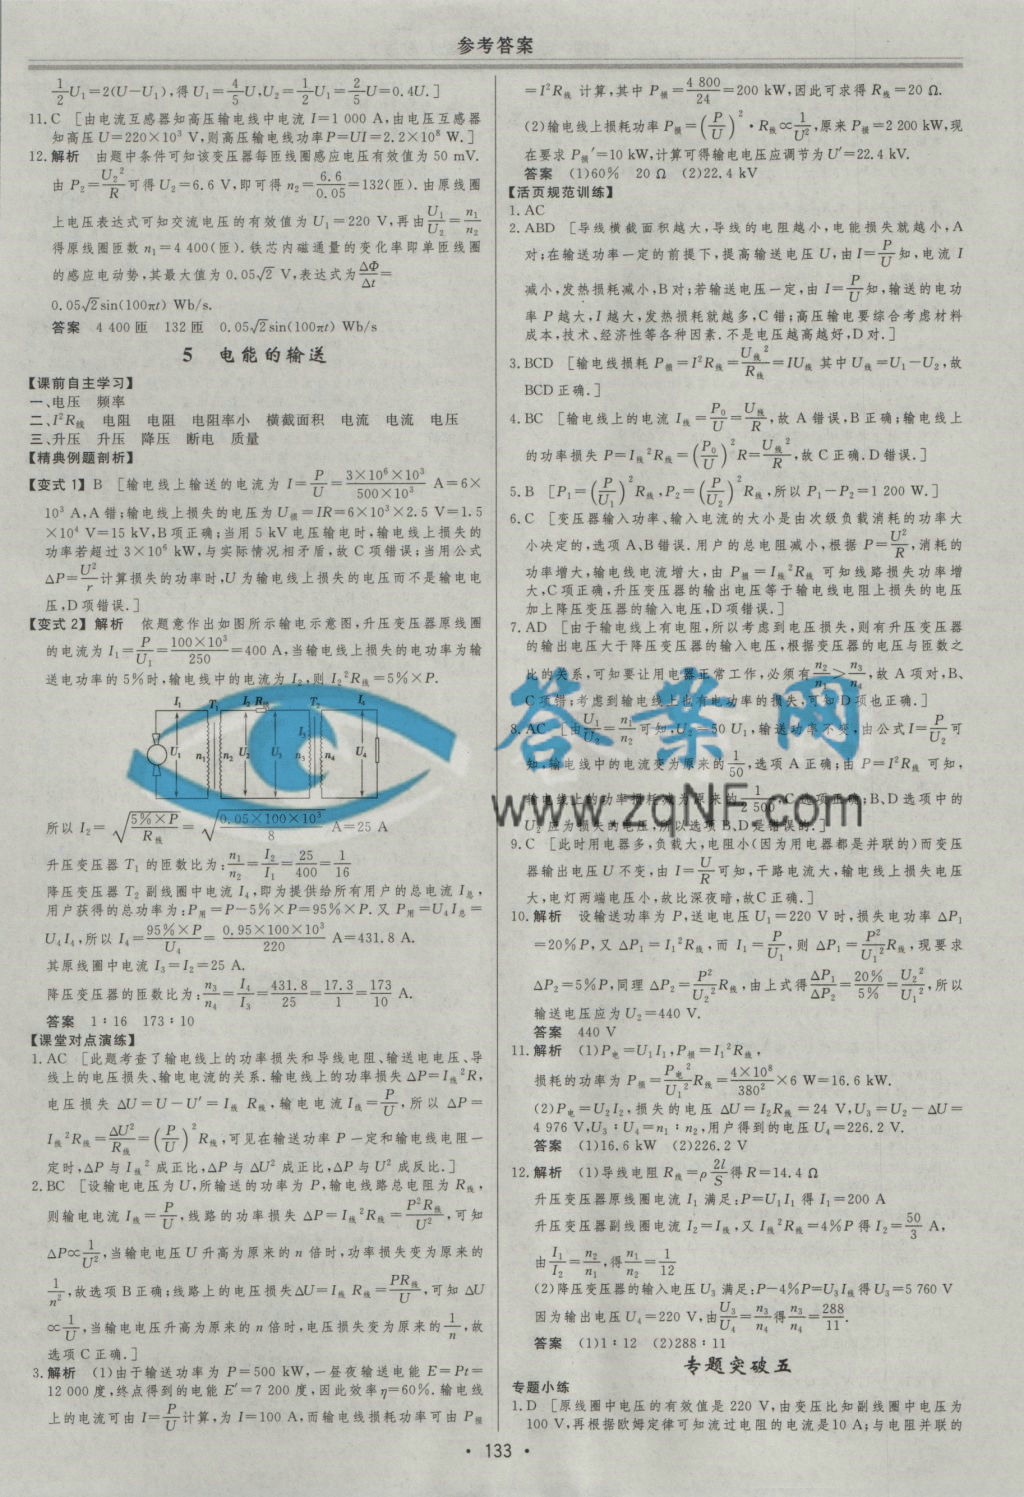 参考答案
½U₁=2(U-U₁),得U₁=4/5U,U₂=½U₁=2/5U=0.4U.]
11.C [由电流互感器知高压输电线中电流 I=1 000 A,由电压互感器
知高压U=220×10³ V,则高压输电线功率P=UI=2.2×10⁸ W.]
12.解析 由题中条件可知该变压器每匝线圈感应电压有效值为50 mV.
由P₂=U₂²/R可得U₂=6.6 V,即可得n₂=6.6/0.05=132(匝).由原线圈
上电压表达式可知交流电压的有效值为U₁=220 V,再由U₁/U₂=n₁/n₂
得原线圈匝数n₁=4 400(匝).铁芯内磁通量的变化率即单匝线圈
的感应电动势,其最大值为0.05√2 V,表达式为ΔΦ/Δt=
0.05√2sin(100πt) Wb/s.
答案 4 400匝 132匝 0.05√2sin(100πt) Wb/s
5 电能的输送
【课前自主学习】
一、电压 频率
二、I²R线 电阻 电阻 电阻率小 横截面积 电流 电流 电压
三、升压 升压 降压 断电 质量
【精典例题剖析】
【变式1】B [输电线上输送的电流为I=P/U=3×10⁶×10³/500×10³ A=6×
10³ A,A错;输电线上损失的电压为U损=IR=6×10³×2.5 V=1.5
×10⁴ V=15 kV,B项正确;当用5 kV电压输电时,输电线上损失的
功率若超过3×10⁶ kW,与实际情况相矛盾,故C项错误;当用公式
ΔP=U²/r计算损失的功率时,U为输电线上损失的电压而不是输电电
压,D项错误.]
【变式2】解析 依题意作出如图所示输电示意图,升压变压器原线圈
的电流为I₁=P/U₁=100×10³/250=400 A,当输电线上损失的电功率为输
送电功率的5%时,输电线中的电流为I₂,则I₂²R线=5%×P.
I₁ T₁ I₂ R线 T₂ I₄
I₃
U₁ n₁ n₂ U₂ U₃ n₃ n₄ U₄
所以I₂=√(5%×P/R线)=√(0.05×100×10³/8) A=25 A
升压变压器T₁的匝数比为:n₁/n₂=I₂/I₁=25/400=1/16
降压变压器T₂副线圈中电流I₄,即为提供给所有用户的总电流I总,
用户获得的总功率为:P用=P-5%×P=95%×P.又P用=U₄I总=
U₄I₄,所以I₄=95%×P/U₄=0.95×100×10³/220 A=431.8 A.
其原线圈中电流I₃=I₂=25 A.
降压变压器的匝数比为:n₃/n₄=I₄/I₃=431.8/25=17.3/1=173/10 A.
答案 1∶16 173∶10
【课堂对点演练】
1.AC [此题考查了输电线上的功率损失和导线电阻、输送电电压、导
线上的电压损失、输电电流的关系.输电线上的功率损失ΔP=I线²R,
电压损失ΔU=U-U′=I线 R线,输电电流I线=P/U,所以ΔP=
I线²R线=ΔU²/R线=(P/U)²R线,可见在输送功率P一定和输电线电阻一
定时,ΔP与I线²成正比,ΔP与ΔU²成正比,ΔP与U²成反比.]
2.BC [设输电电压为U,所输送的功率为P,输电线路总电阻为R线,
则输电电流I线=P/U,线路的功率损失ΔP=I线²R线=P²R线/U²,可知
ΔP∝1/U²,当输电电压U升高为原来的n倍时,功率损失变为原来的
1/n²,故选项B正确;线路上的电压损失ΔU=I线 R线=PR线/U,可知ΔU
∝1/U,当输电电压升高为原来的n倍时,电压损失变为原来的1/n,故
选项C正确.]
3.解析 (1)由于输送功率为P=500 kW,一昼夜输送电能E=Pt=
12 000度,终点得到的电能E′=7 200度,因此效率η=60%.输电线
上的电流可由I=P/U计算,为I=100 A,而输电线损耗功率可由P损
=I²R线 计算,其中P损=4 800/24=200 kW,因此可求得R线=20 Ω.
(2)输电线上损耗功率P损=(P/U)²·R线∝1/U²,原来P损=2 200 kW,现
在要求P损′=10 kW,计算可得输电电压应调节为U′=22.4 kV.
答案 (1)60% 20 Ω (2)22.4 kV
【活页规范训练】
1.AC
2.ABD [导线横截面积越大,导线的电阻越小,电能损失就越小,A
对;在输送功率一定的前提下,提高输送电压U,由I=P/U知,电流I
减小,发热损耗减小,B对;若输送电压一定,由I=P/U知,输送的电功
率P越大,I越大,发热损耗就越多,C错;高压输电要综合考虑材料
成本,技术、经济性等各种因素.不是电压越高越好,D对.]
3.BCD [输电线损耗P损=I²R线=U线²/R线=IU线 其中U线=U₁-U₂,故
BCD正确.]
4.BC [输电线上的电流I线=P₀/U=U线/R,故A错误,B正确;输电线上
的功率损失P=I线²R线=(P₀/U)²R=U线²/R,故C正确.D错误.]
5.B [P₁=(P/U₁)²R线,P₂=(P/U₂)²R线,所以P₁-P₂=1 200 W.]
6.C [变压器输入功率、输入电流的大小是由次级负载消耗的功率大
小决定的,选项A、B错误.用户的总电阻减小,根据P=U²/R,消耗的
功率增大,输电线电流增大,由P损=I线²R线 可知线路损失功率增
大,C项正确,升压变压器的输出电压等于输电线电阻上损失的电压
加上降压变压器的输入电压,D项错误.]
7.AD [由于输电线上有电阻,所以考虑到电压损失,则有升压变压器
的输出电压大于降压变压器的输入电压,根据变压器的电压与匝数之
比的关系,可知要让用电器正常工作,必须有n₂/n₁>n₃/n₄,故A项对,B、
C项错;考虑到输电线上也有电功率的损失,可知D项也正确.]
8.AC [由U₁/U₂=n₁/n₂可知,U₂=50 U₁,输送功率不变,由公式I=P/U可
知,输电线中的电流变为原来的1/50,选项A正确;由P=I²R线 可知,
输电线上的功率损耗减为原来的1/2 500,C选项正确;B、D选项中的
U₂应为损失的电压,所以选项B、D是错误的.]
9.C [此时用电器多,负载大,电阻小(因为用电器都是并联的)而变压
器输出电压U不变,由I=U/R可知,干路电流大,输电线上损失电压
大,电灯两端电压小,故比深夜暗,故C正确.]
10.解析 设输送功率为P,送电电压U₁=220 V时,损失电功率ΔP₁
=20%P,又ΔP₁=I₁²R线,而I₁=P/U₁,则ΔP₁=P²/U₁²R线,现要求
ΔP₂=5%P,同理ΔP₂=P²/U₂²R线,由上式得ΔP₁/ΔP₂=20%/5%=U₂²/U₁²,所以
输送电压应为U₂=440 V.
答案 440 V
11.解析 (1)P电=U₁I₁,P损=I₁²R线,
损耗的功率为P损=P电²/U₁²R线=4×10⁸/380²×6 W=16.6 kW.
(2)P电=U₂I₂,损失的电压ΔU=I₂R线=24 V,U₃=U₂-ΔU=
4 976 V,U₃∶U₄=n₁∶n₂,用户得到的电压U₄=226.2 V.
答案 (1)16.6 kW (2)226.2 V
12.解析 (1)导线电阻R线=ρ2l/S得R=14.4 Ω
升压变压器原线圈电流I₁满足:P=U₁I₁得I₁=200 A
升压变压器副线圈电流I₂=I线,又I线²R线=4%P得I₂=50/3 A,
由I₁/I₂=n₂/n₁,得n₁/n₂=1/12
(2)降压变压器的输入电压U₃满足:P-4%P=U₃I线得U₃=5 760 V
因为输出电压U₄=220 V,由U₃/U₄=n₃/n₄得n₃/n₄=288/11.
答案 (1)1∶12 (2)288∶11
专题突破五
专题小练
1.D [原线圈中电压的有效值是220 V,由变压比知副线圈中电压为
100 V,再根据欧姆定律可知流过电阻的电流是10 A;与电阻并联的
答案网
www.zqNF.com
• 133 •